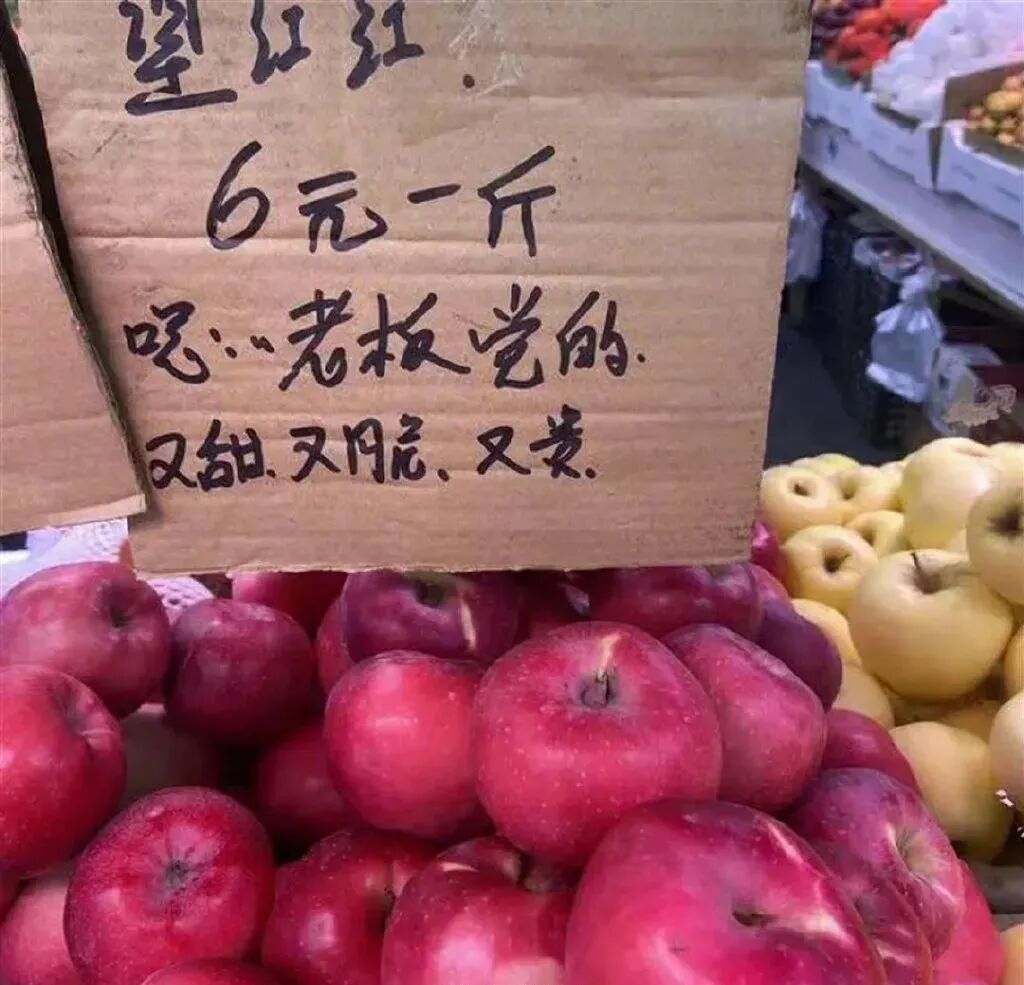 红红.
6元一斤
呃……老板觉的.
又甜.又脆、又贵.